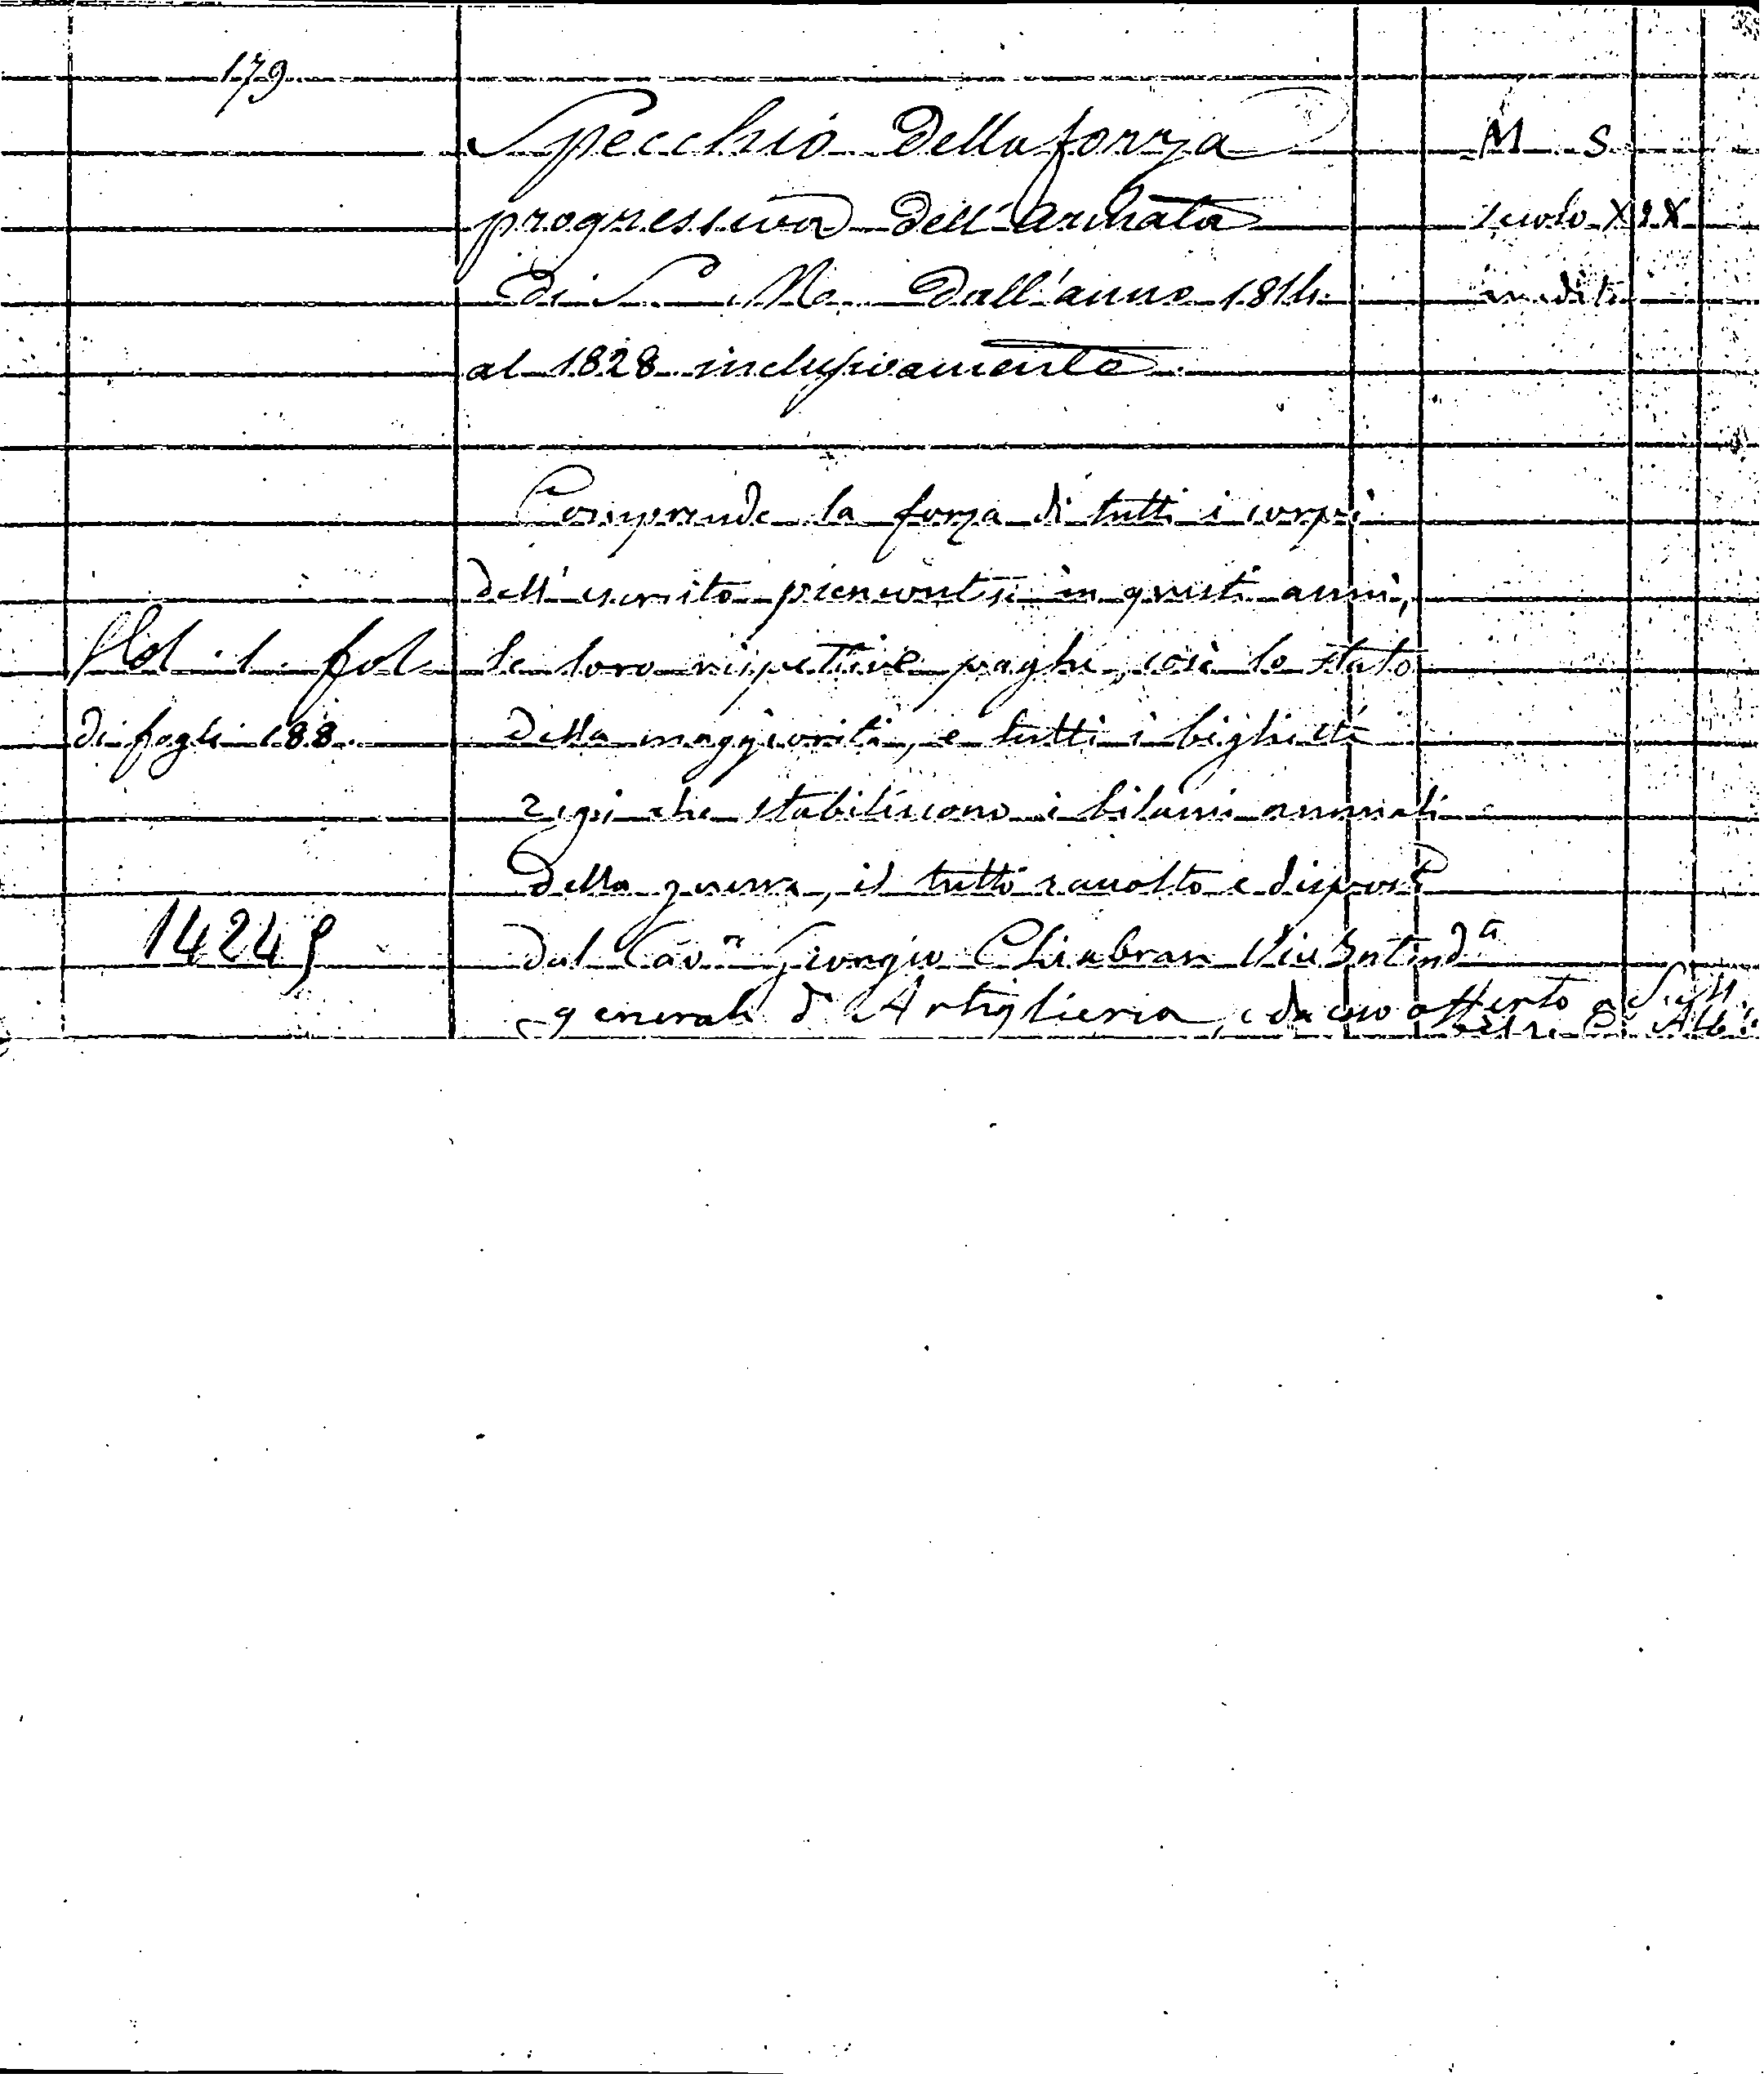 179
Specchio della forza M S
progressiva dell'armata secolo XIX
di S. Ma. dall'anno 1814 inedito
al 1828 inclusivamente.
Comprende la forza di tutti i corpi
dell'esercito piemontse in questi anni,
Vol. 1. fol. le loro rispettive paghe, così lo stato
di fogli 188. della maggiorità, e tutti i biglietti
regi che stabiliscono i bilanci annuali
della guerra, il tutto raccolto e disposto
14245 dal Cavre Giorgio Chiabran Vice Intendte
generale d'Artiglieria, e da esso offerto a S.